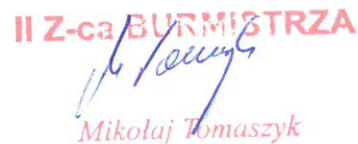 II Z-ca BURMISTRZA
Mikołaj Tomaszyk